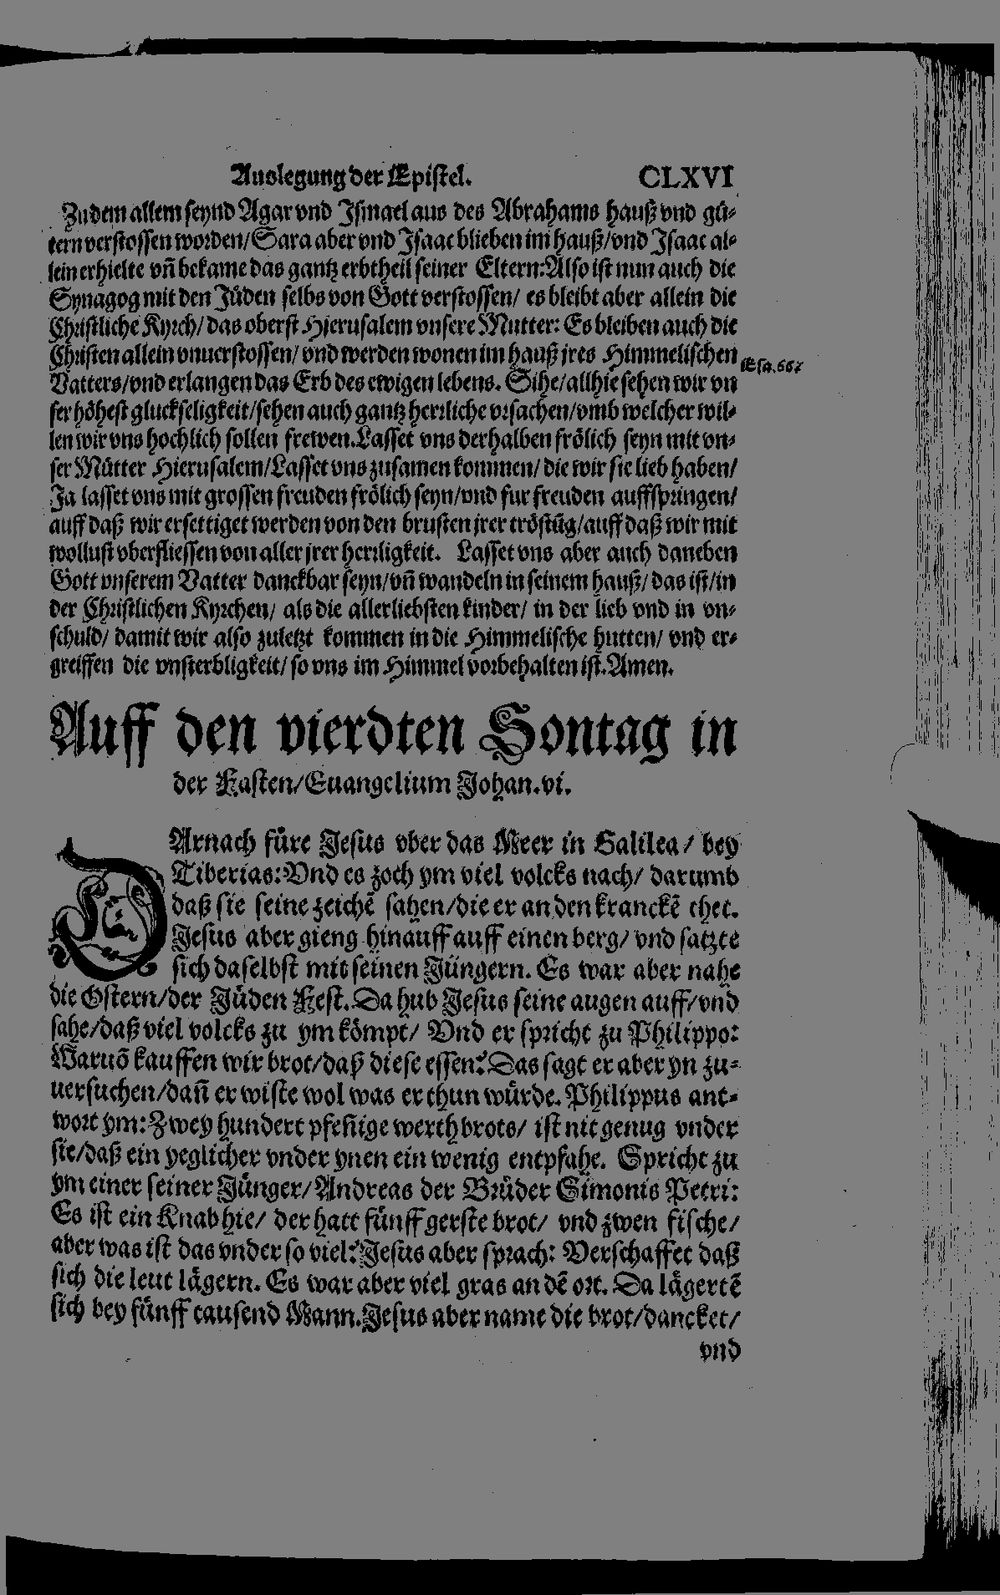 Auslegung der Epistel. CLXVI
Zu dem allem seynd Agar vnd Jsmael aus des Abrahams hauß vnd gü-
tern verstossen worden/ Sara aber vnd Jsaac blieben im hauß/ vnd Jsaac al-
lein erhielte vñ bekame das gantz erbtheil seiner Eltern: Also ist nun auch die
Synagog mit den Jüden selbs von Gott verstossen/ es bleibt aber allein die
Christliche Kyrch/ das oberst Hierusalem vnsere Mutter: Es bleiben auch die
Christen allein vnuerstossen/ vnd werden wonen im hauß jres Himmelischen
Esa.66
Vatters/ vnd erlangen das Erb des ewigen lebens. Sihe/ allhie sehen wir vn
ser höhest gluckseligkeit/ sehen auch gantz herrliche vrsachen/ vmb welcher wil-
len wir vns hochlich sollen frewen. Lasset vns derhalben frölich seyn mit vn-
ser Mütter Hierusalem/ Lasset vns zusamen kommen/ die wir sie lieb haben/
Ja lasset vns mit grossen freuden frölich seyn/ vnd fur freuden auffspringen/
auff daß wir ersettiget werden von den brusten jrer tröstũg/ auff daß wir mit
wollust vberfliessen von aller jrer herrligkeit. Lasset vns aber auch daneben
Gott vnserem Vatter danckbar seyn/ vñ wandeln in seinem hauß/ das ist/ in
der Christlichen Kyrchen/ als die allerliebsten kinder/ in der lieb vnd in vn-
schuld/ damit wir also zuletzt kommen in die Himmelische hutten/ vnd er-
greiffen die vnsterbligkeit/ so vns im Himmel vorbehalten ist. Amen.
Auff den vierdten Sontag in
der Fasten/ Euangelium Johan.vi.
DArnach füre Jesus vber das Meer in Galilea/ bey
Tiberias: Vnd es zoch ym viel volcks nach/ darumb
daß sie seine zeichẽ sahen/ die er an den kranckẽ thet.
Jesus aber gieng hinauff auff einen berg/ vnd satzte
sich daselbst mit seinen Jüngern. Es war aber nahe
die Ostern/ der Jüden Fest. Da hub Jesus seine augen auff/ vnd
sahe/ daß viel volcks zu ym kömpt/ Vnd er spricht zu Philippo:
Waruõ kauffen wir brot/ daß diese essen? Das sagt er aber yn zu-
uersuchen/ dañ er wiste wol was er thun würde. Philippus ant-
wort ym: Zwey hundert pfeñige werth brots/ ist nit genug vnder
sie/ daß ein yeglicher vnder ynen ein wenig entpfahe. Spricht zu
ym einer seiner Jünger/ Andreas der Brüder Simonis Petri:
Es ist ein Knab hie/ der hatt fünff gerste brot/ vnd zwen fische/
aber was ist das vnder so viel? Jesus aber sprach: Verschaffet daß
sich die leut lägern. Es war aber viel gras an dẽ ort. Da lägertẽ
sich bey fünff tausend Mann. Jesus aber name die brot/ dancket/
vnd